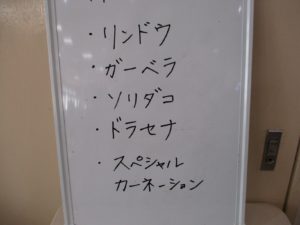 ・リンドウ
・ガーベラ
・ソリダコ
・ドラセナ
・スペシャル
カーネーション